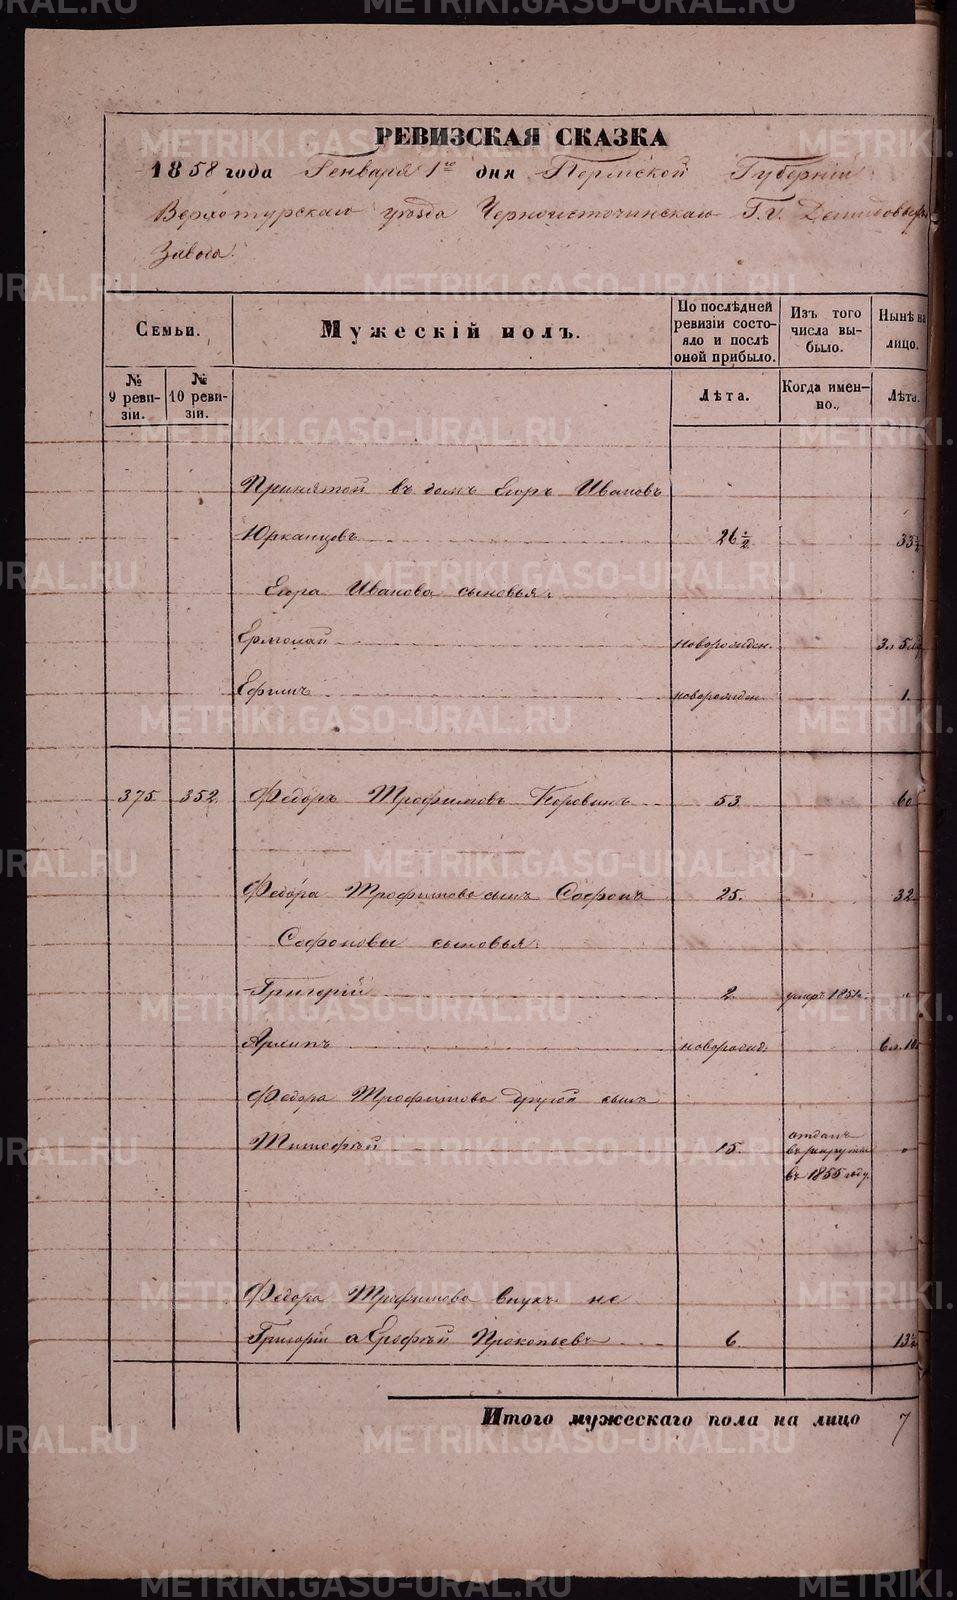 РЕВИЗСКАЯ СКАЗКА
1858 года Генваря 1го дня Пермской Губернiи
Верхотурскаго уѣзда Черноисточинскаго Г.г. Демидовыхъ
Завода.
Семьи.
Мужескiй полъ.
По послѣдней ревизiи состояло и послѣ оной прибыло.
Изъ того числа выбыло.
Нынѣ на лицо.
№ 9 ревизiи.
№ 10 ревизiи.
Лѣта.
Когда именно.
Лѣта.
Принятой въ домъ Егоръ Ивановъ
Юрканцовъ 26½ 33½
Егора Иванова сыновья:
Ермолай новорожден. 3 л 5 м
Ефимъ новорожден. 1.
375 352 Федоръ Трофимовъ Коровинъ 53 60
Федора Трофимова сынъ Софонъ 25. 32
Софоновы сыновья:
Григорiй 2. умеръ 1851. "
Архипъ новорожд. 6 л. 10
Федора Трофимова другой сынъ
Тимофѣй 15. отданъ въ рекруты въ 1855 году. "
Федора Трофимова внукъ не
Григорiй а Ерофѣй Прокопьевъ 6. 13½
Итого мужескаго пола на лицо 7
METRIKI.GASO-URAL.RU